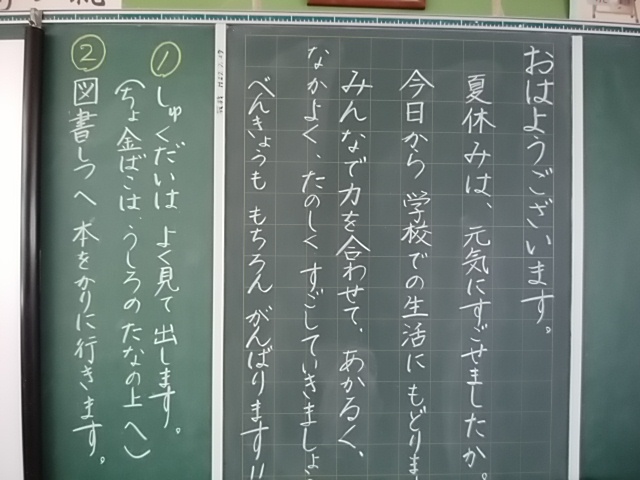 おはようございます。
夏休みは、元気にすごせましたか。
今日から 学校での生活に もどりま
みんなで力を合わせて、あかるく、
なかよく、たのしく すごしていきましょう
べんきょうも もちろん がんばります!!
① しゅくだいは、よく見て 出します。
(ちょ金ばこは、うしろのたなの上へ)
② 図書しつへ 本をかりに行きます。